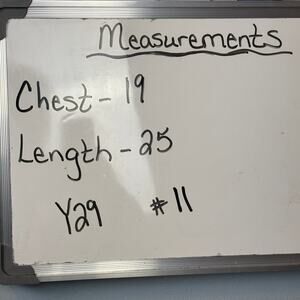 Measurements
Chest - 19
Length - 25
Y29 #11